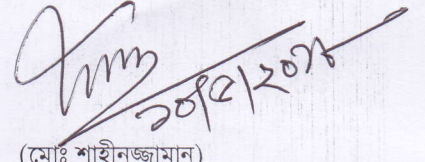 ১০/৫/২০১৮
(মোঃ শাহীনুজ্জামান)